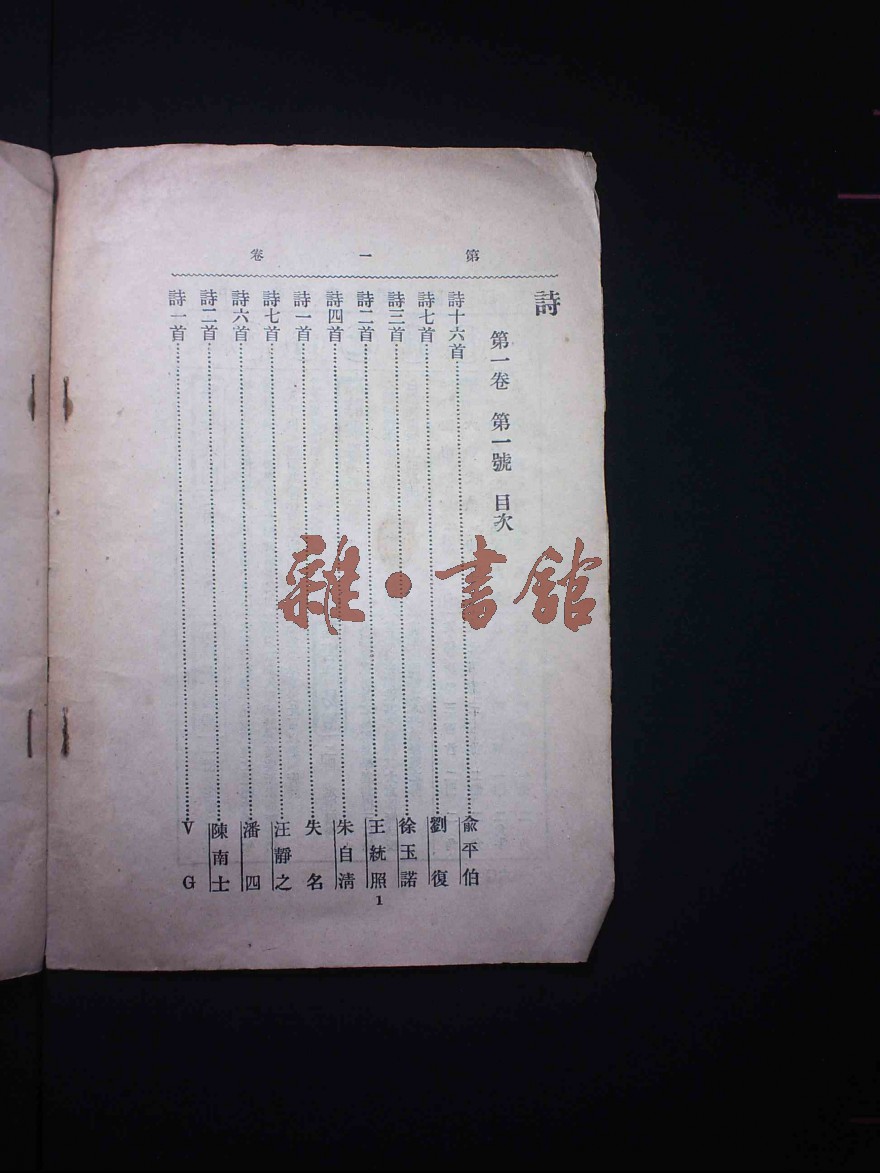 第一卷
詩
第一卷 第一號 目次
詩十六首……俞平伯
詩七首……劉復
詩三首……徐玉諾
詩二首……王統照
詩四首……朱自清
詩一首……失名
詩七首……汪靜之
詩六首……潘四
詩二首……陳南士
詩一首……V G
1
雜·書館